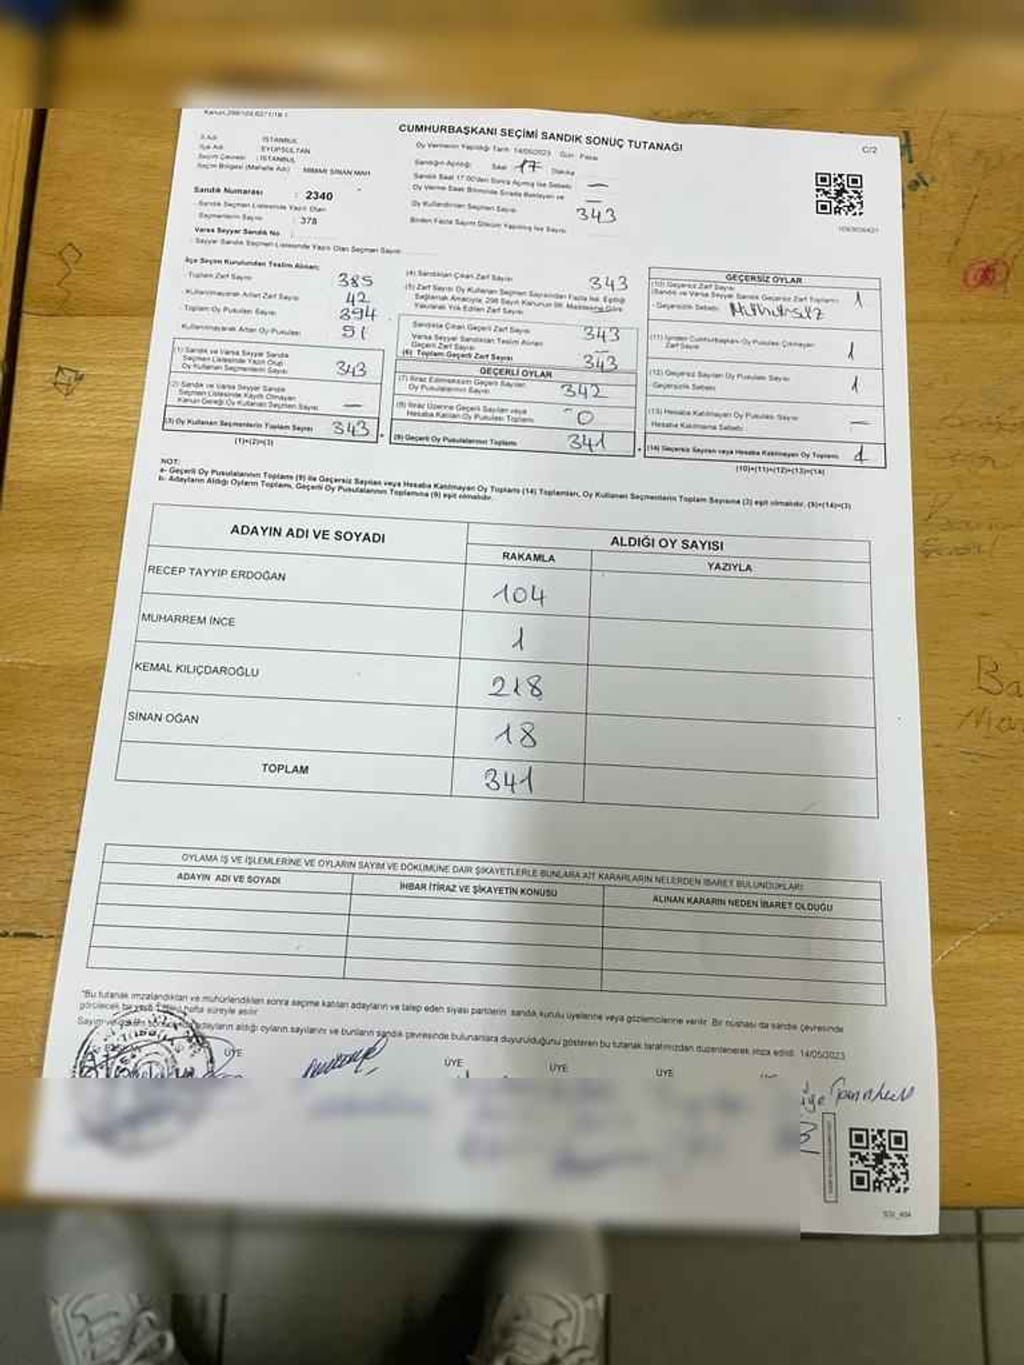 Kanun:298/105,6271/18.1
CUMHURBAŞKANI SEÇİMİ SANDIK SONUÇ TUTANAĞI
C/2
İl Adı : İSTANBUL
İlçe Adı : EYÜPSULTAN
Seçim Çevresi : İSTANBUL
Seçim Bölgesi (Mahalle Adı) : MİMAR SİNAN MAH
Sandık Numarası : 2340
- Sandık Seçmen Listesinde Yazılı Olan
Seçmenlerin Sayısı : 378
Varsa Seyyar Sandık No :
- Seyyar Sandık Seçmen Listesinde Yazılı Olan Seçmen Sayısı:
Oy Vermenin Yapıldığı Tarih: 14/05/2023 Gün: Pazar
Sandığın Açıldığı: Saat 17 Dakika
Sandık Saat 17.00'den Sonra Açılmış İse Sebebi: —
Oy Verme Saati Bitiminde Sırada Bekleyen ve
Oy Kullandırılan Seçmen Sayısı: —
343
Birden Fazla Sayım Döküm Yapılmış İse Sayısı:
İlçe Seçim Kurulundan Teslim Alınan;
- Toplam Zarf Sayısı: 385
- Kullanılmayarak Artan Zarf Sayısı: 42
- Toplam Oy Pusulası Sayısı: 394
Kullanılmayarak Artan Oy Pusulası: 51
(1) Sandık ve Varsa Seyyar Sandık
Seçmen Listesinde Yazılı Olup
Oy Kullanan Seçmenlerin Sayısı: 343
(2) Sandık ve Varsa Seyyar Sandık
Seçmen Listesinde Kayıtlı Olmayan
Kanun Gereği Oy Kullanan Seçmenlerin Sayısı: —
(3) Oy Kullanan Seçmenlerin Toplam Sayısı: 343
(1)+(2)=(3)
(4) Sandıktan Çıkan Zarf Sayısı: 343
(5) Zarf Sayısı Oy Kullanan Seçmen Sayısından Fazla İse, Eşitliği
Sağlamak Amacıyla, 298 Sayılı Kanunun 98. Maddesine Göre
Yakılarak Yok Edilen Zarf Sayısı:
Sandıkta Çıkan Geçerli Zarf Sayısı: 343
Varsa Seyyar Sandıktan Teslim Alınan
Geçerli Zarf Sayısı: —
(6) Toplam Geçerli Zarf Sayısı: 343
GEÇERLİ OYLAR
(7) İtiraz Edilmeksizin Geçerli Sayılan
Oy Pusulalarının Sayısı: 342
(8) İtiraz Üzerine Geçerli Sayılan veya
Hesaba Katılan Oy Pusulası Toplamı: 0
(9) Geçerli Oy Pusulalarının Toplamı: 341
GEÇERSİZ OYLAR
(10) Geçersiz Zarf Sayısı:
(Sandık ve Varsa Seyyar Sandık Geçersiz Zarf Toplamı) 1
- Geçersizlik Sebebi: Mühürsüz
(11) İçinden Cumhurbaşkanı Oy Pusulası Çıkmayan
Zarf Sayısı: 1
(12) Geçersiz Sayılan Oy Pusulası Sayısı: 1
Geçersizlik Sebebi:
(13) Hesaba Katılmayan Oy Pusulası Sayısı:
Hesaba Katılmama Sebebi: —
(14) Geçersiz Sayılan veya Hesaba Katılmayan Oy Toplamı:
(10)+(11)+(12)+(13)=(14)
NOT:
a- Geçerli Oy Pusulalarının Toplamı (9) ile Geçersiz Sayılan veya Hesaba Katılmayan Oy Toplamı (14) Toplamları, Oy Kullanan Seçmenlerin Toplam Sayısına (3) eşit olmalıdır. (9)+(14)=(3)
b- Adayların Aldığı Oyların Toplamı, Geçerli Oy Pusulalarının Toplamına (9) eşit olmalıdır.
ADAYIN ADI VE SOYADI
ALDIĞI OY SAYISI
RAKAMLA YAZIYLA
RECEP TAYYİP ERDOĞAN 104
MUHARREM İNCE 1
KEMAL KILIÇDAROĞLU 218
SİNAN OĞAN 18
TOPLAM 341
OYLAMA İŞ VE İŞLEMLERİNE VE OYLARIN SAYIM VE DÖKÜMÜNE DAİR ŞİKAYETLERLE BUNLARA AİT KARARLARIN NELERDEN İBARET BULUNDUKLARI
ADAYIN ADI VE SOYADI
İHBAR İTİRAZ VE ŞİKAYETİN KONUSU
ALINAN KARARIN NEDEN İBARET OLDUĞU
"Bu tutanak imzalandıktan ve mühürlendikten sonra seçime katılan adayların ve talep eden siyasi partilerin sandık kurulu üyelerine veya gözlemcilerine verilir. Bir nüshası da sandık çevresinde
görülecek bir yere 1 hafta süreyle asılır.
adayların aldığı oyların sayılarını ve bunların sandık çevresinde bulunanlara duyurulduğunu gösteren bu tutanak tarafımızdan düzenlenerek imza edildi. 14/05/2023
ÜYE ÜYE ÜYE ÜYE